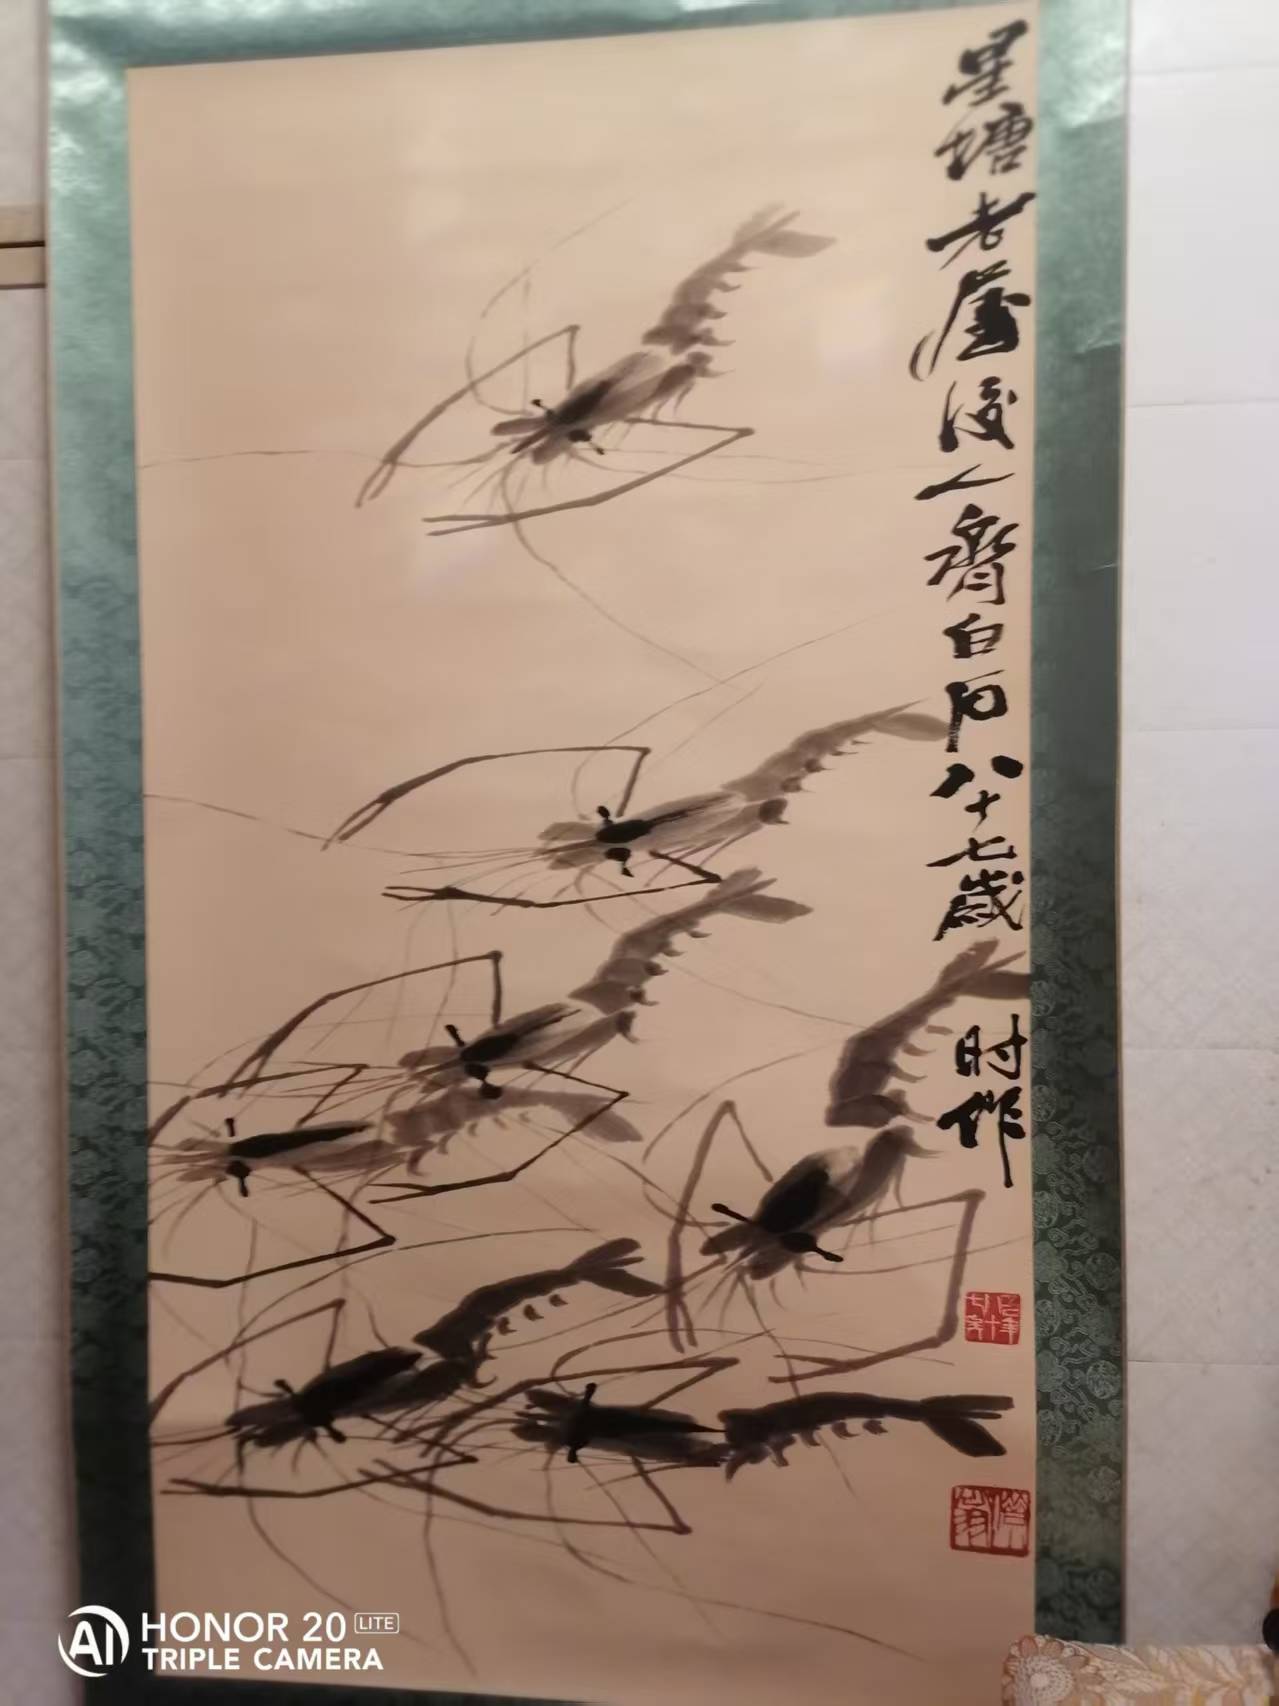 星塘老屋後人齊白石八十七歲
时作
HONOR 20 LITE
TRIPLE CAMERA
AI